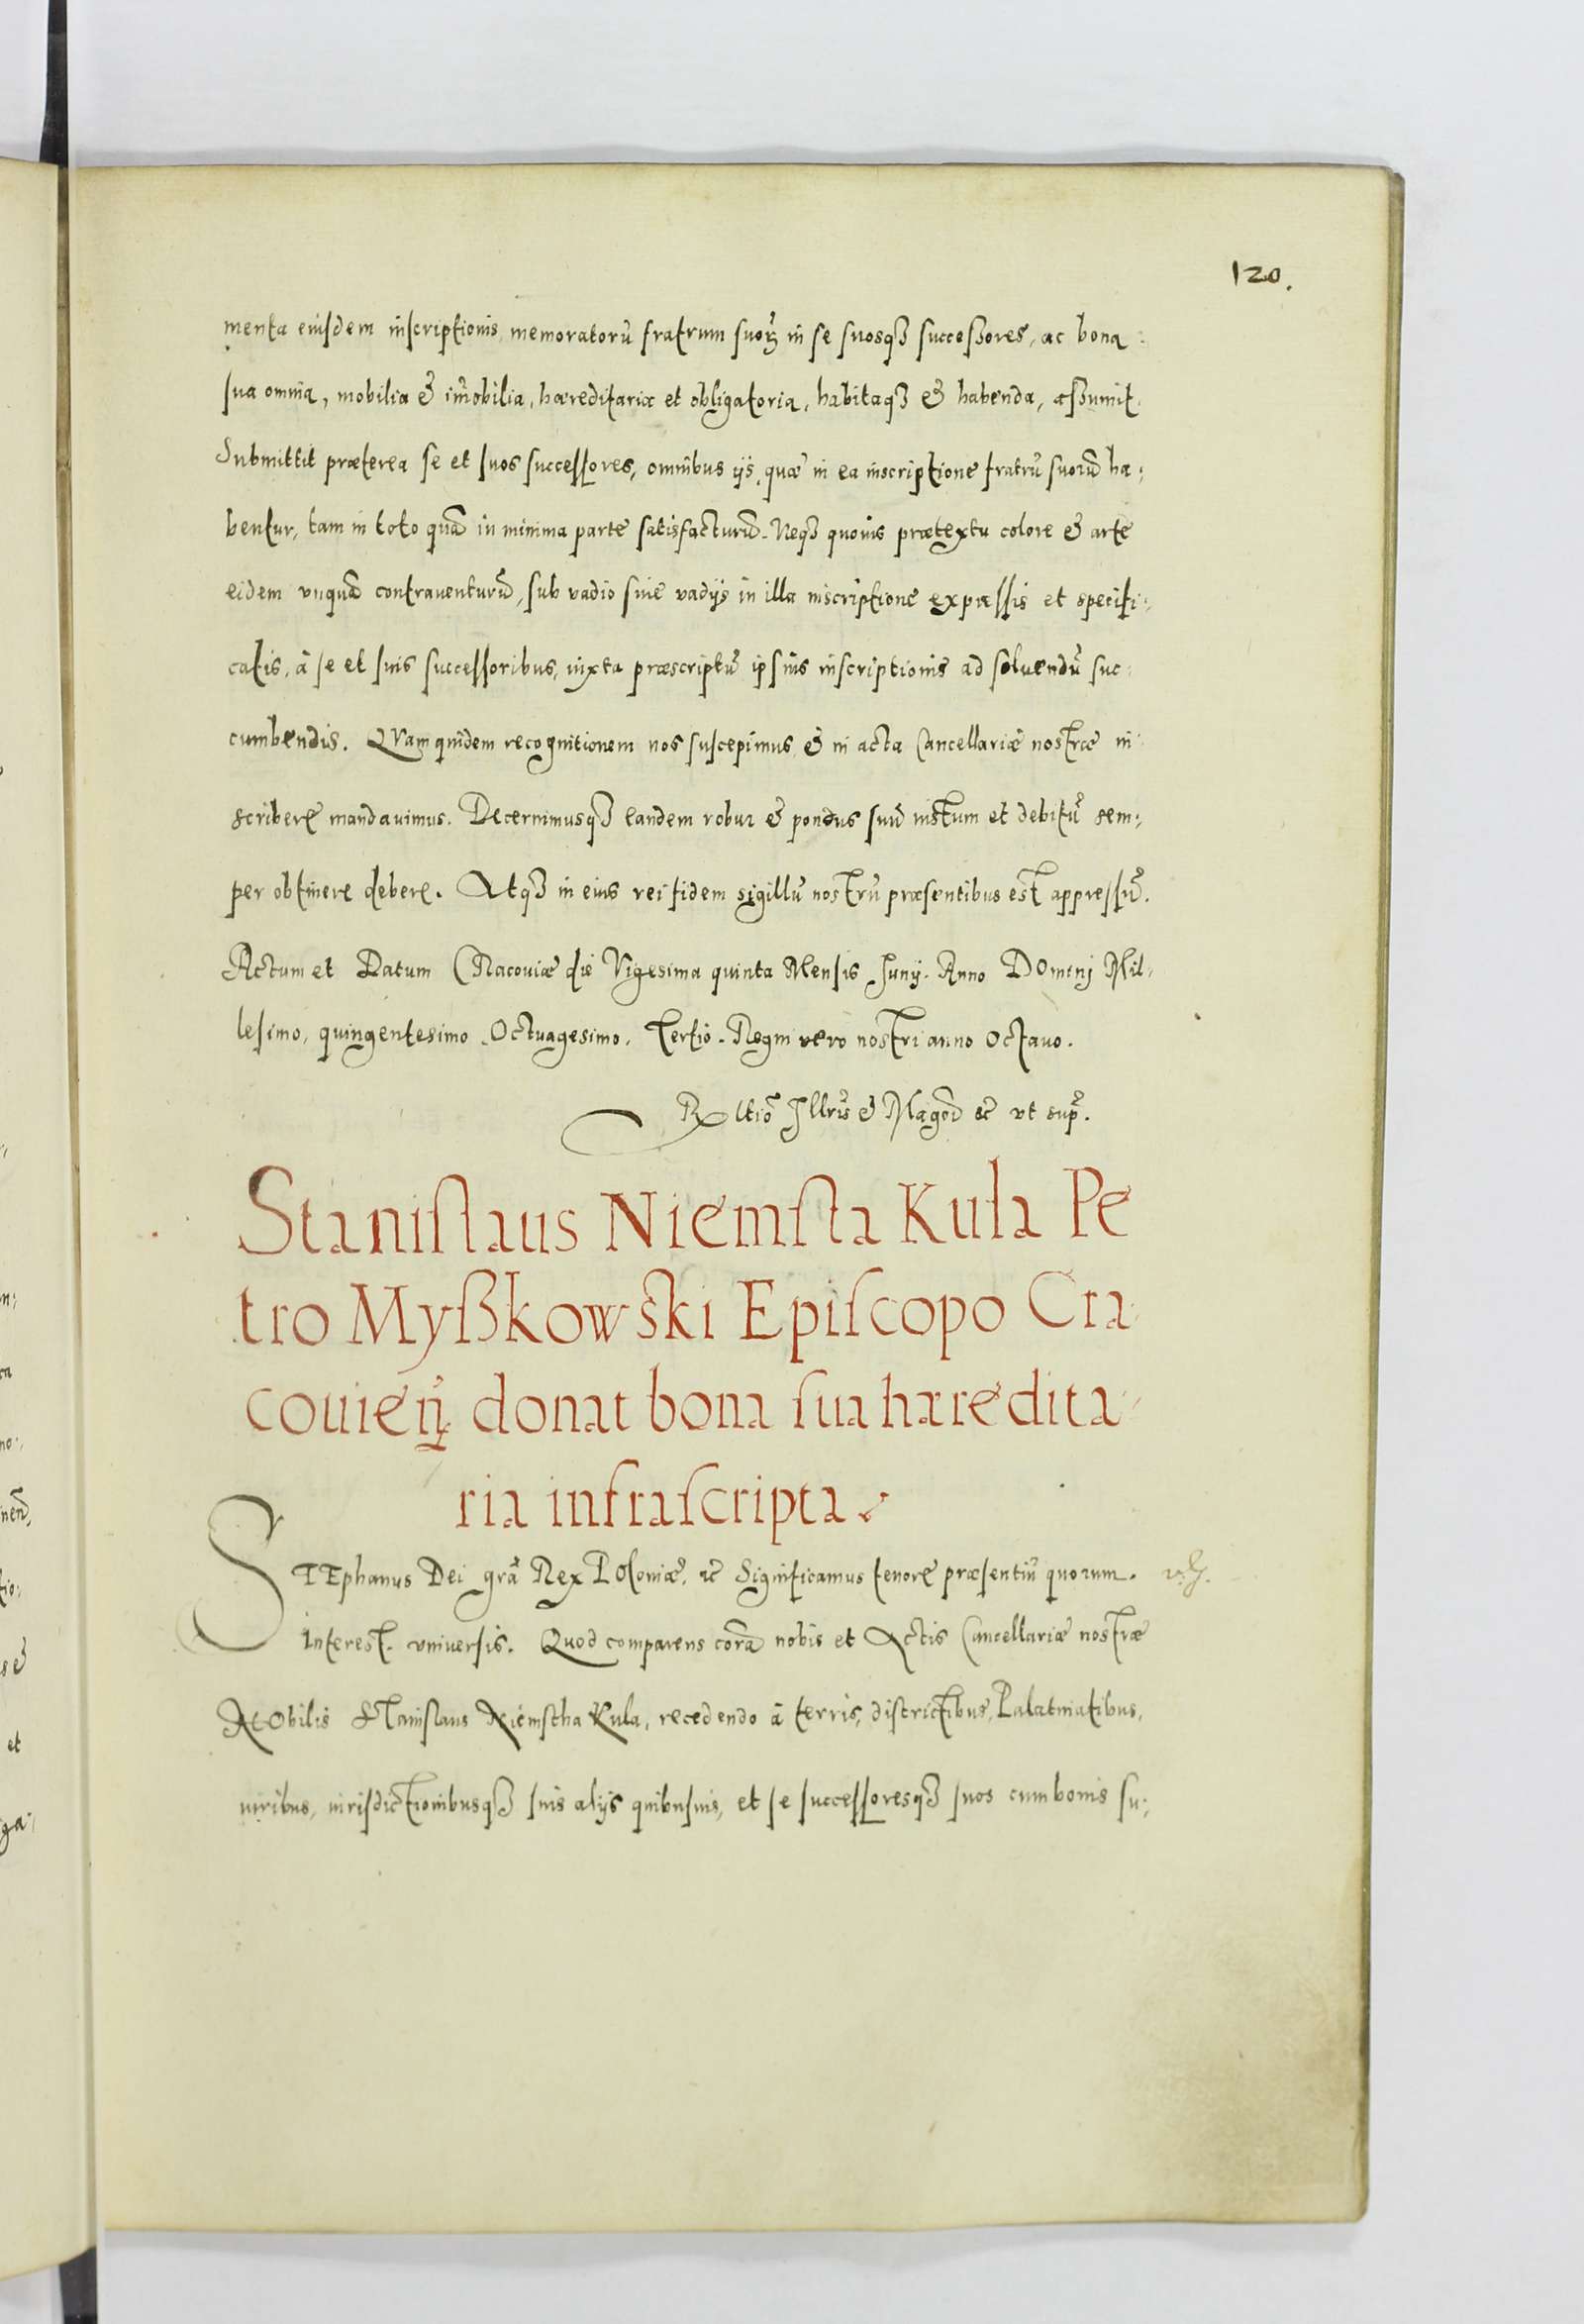 120.
menta eiusdem inscriptionis memoratorũ fratrum suoꝝ in se suosqꝫ successores, ac bona
sua omnia, mobilia & im̃obilia, hæreditaria et obligatoria, habitaqꝫ & habenda, assumit.
Submittit præterea se et suos successores, omnibus ijs, quæ in ea inscriptione fratrũ suorũ ha:
bentur, tam in toto quã in minima parte satisfacturũ. Neqꝫ quouis prætextu colore & arte
eidem vnquã contrauenturũ, sub vadio siue vadijs in illa inscriptione expressis et specifi:
catis, à se et suis successoribus, iuxta præscriptũ ipsius inscriptionis ad soluendũ suc:
cumbendis. QVam quidem recognitionem nos suscepimus & in acta Cancellariæ nostræ in:
scribere mandauimus. Decernimusqꝫ eandem robur & pondus suũ iustum et debitũ sem:
per obtinere debere. Atqꝫ in eius rei fidem sigillũ nostrũ præsentibus est appressũ.
Actum et Datum Cracouiæ die Vigesima quinta Mensis Junij. Anno Domini Mil:
lesimo, quingentesimo Octuagesimo, Tertio. Regni vero nostri anno Octauo.
Rltio Illris & Magcd &c vt sup.
Stanislaus Niemsta Kula Pe
tro Myßkowski Episcopo Cra:
couien̄ donat bona sua hæredita:
ria infrascripta.
STEphanus Dei grã Rex Poloniæ, &c Significamus tenore præsentiũ quorum.
interest. vniuersis. Quod comparens corã nobis et Actis Cancellariæ nostræ
NObilis Stanislaus Niemstha Kula, recedendo à terris, districtibus, Palatinatibus,
iuribus, iurisdictionibusqꝫ suis alijs quibusuis, et se successoresqꝫ suos cum bonis su: